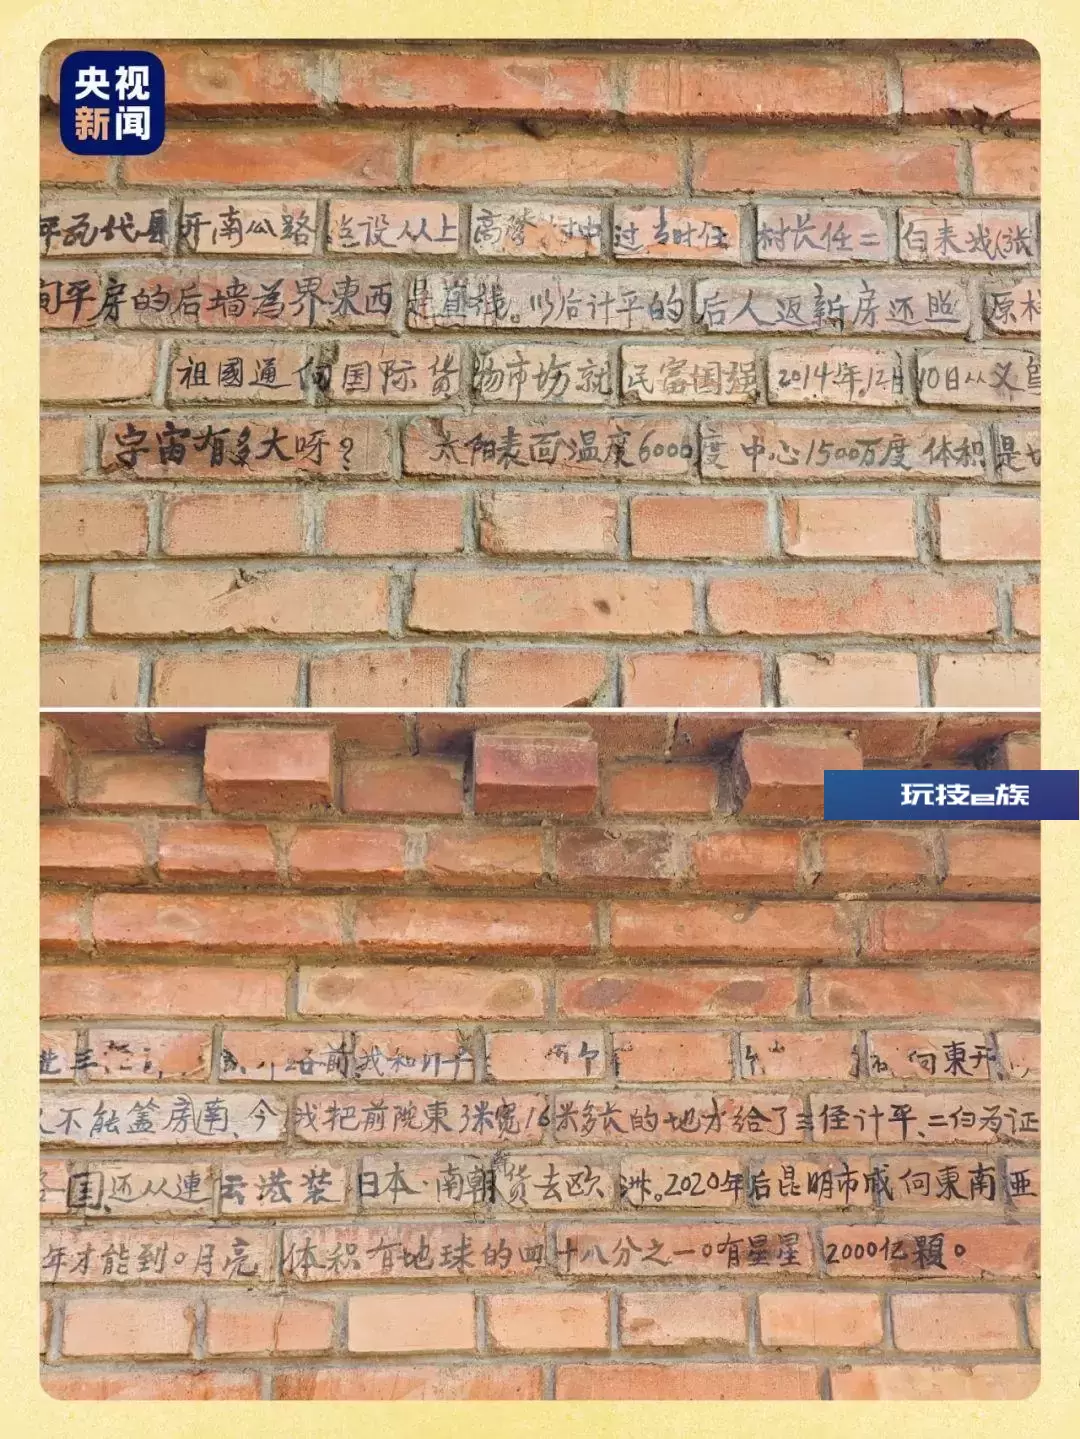 央视
新闻
开南公路
过当时任
村长任二
自来
平房的后墙為界東西是直线。以后计平的后人返新房还照原
祖國通向国际货物市场就民富国强2014年.12月10日从义
宇宙有多大呀？ 太阳表面温度6000度中心1500万度体积是
玩技e族
路前.我和计平
向東开
不能盖房南、今我把前院東3米宽16米多长的地方给了三径计平、二归为证
国还从連云港装日本.南朝货去欧洲。2020年后昆明市成向東南亚
年才能到。月亮体积有地球的四十八分之一。有星星2000亿顆。